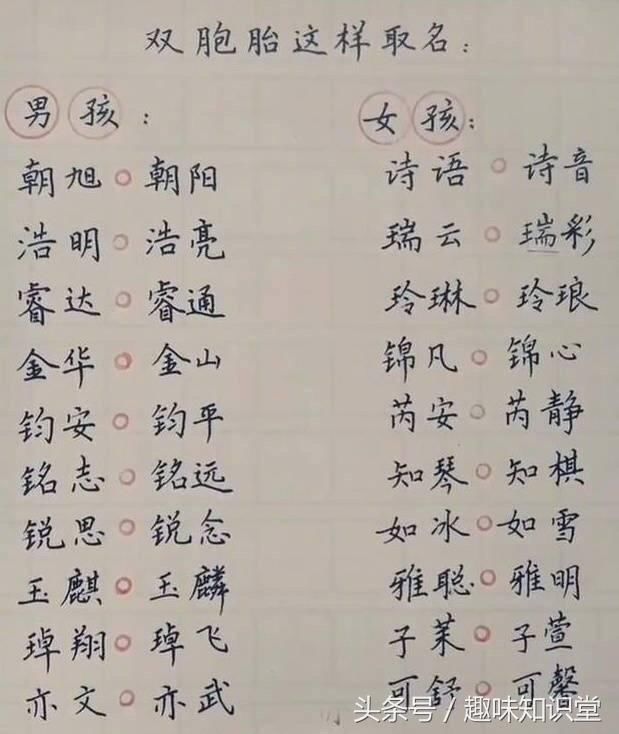 双胞胎这样取名：
男孩：
朝旭。朝阳
浩明。浩亮
睿达。睿通
金华。金山
钧安。钧平
铭志。铭远
锐思。锐念
玉麒。玉麟
琸翔。琸飞
亦文。亦武
女孩：
诗语。诗音
瑞云。瑞彩
玲琳。玲琅
锦凡。锦心
芮安。芮静
知琴。知棋
如冰。如雪
雅聪。雅明
子茉。子萱
可舒。可馨
头条号／趣味知识堂